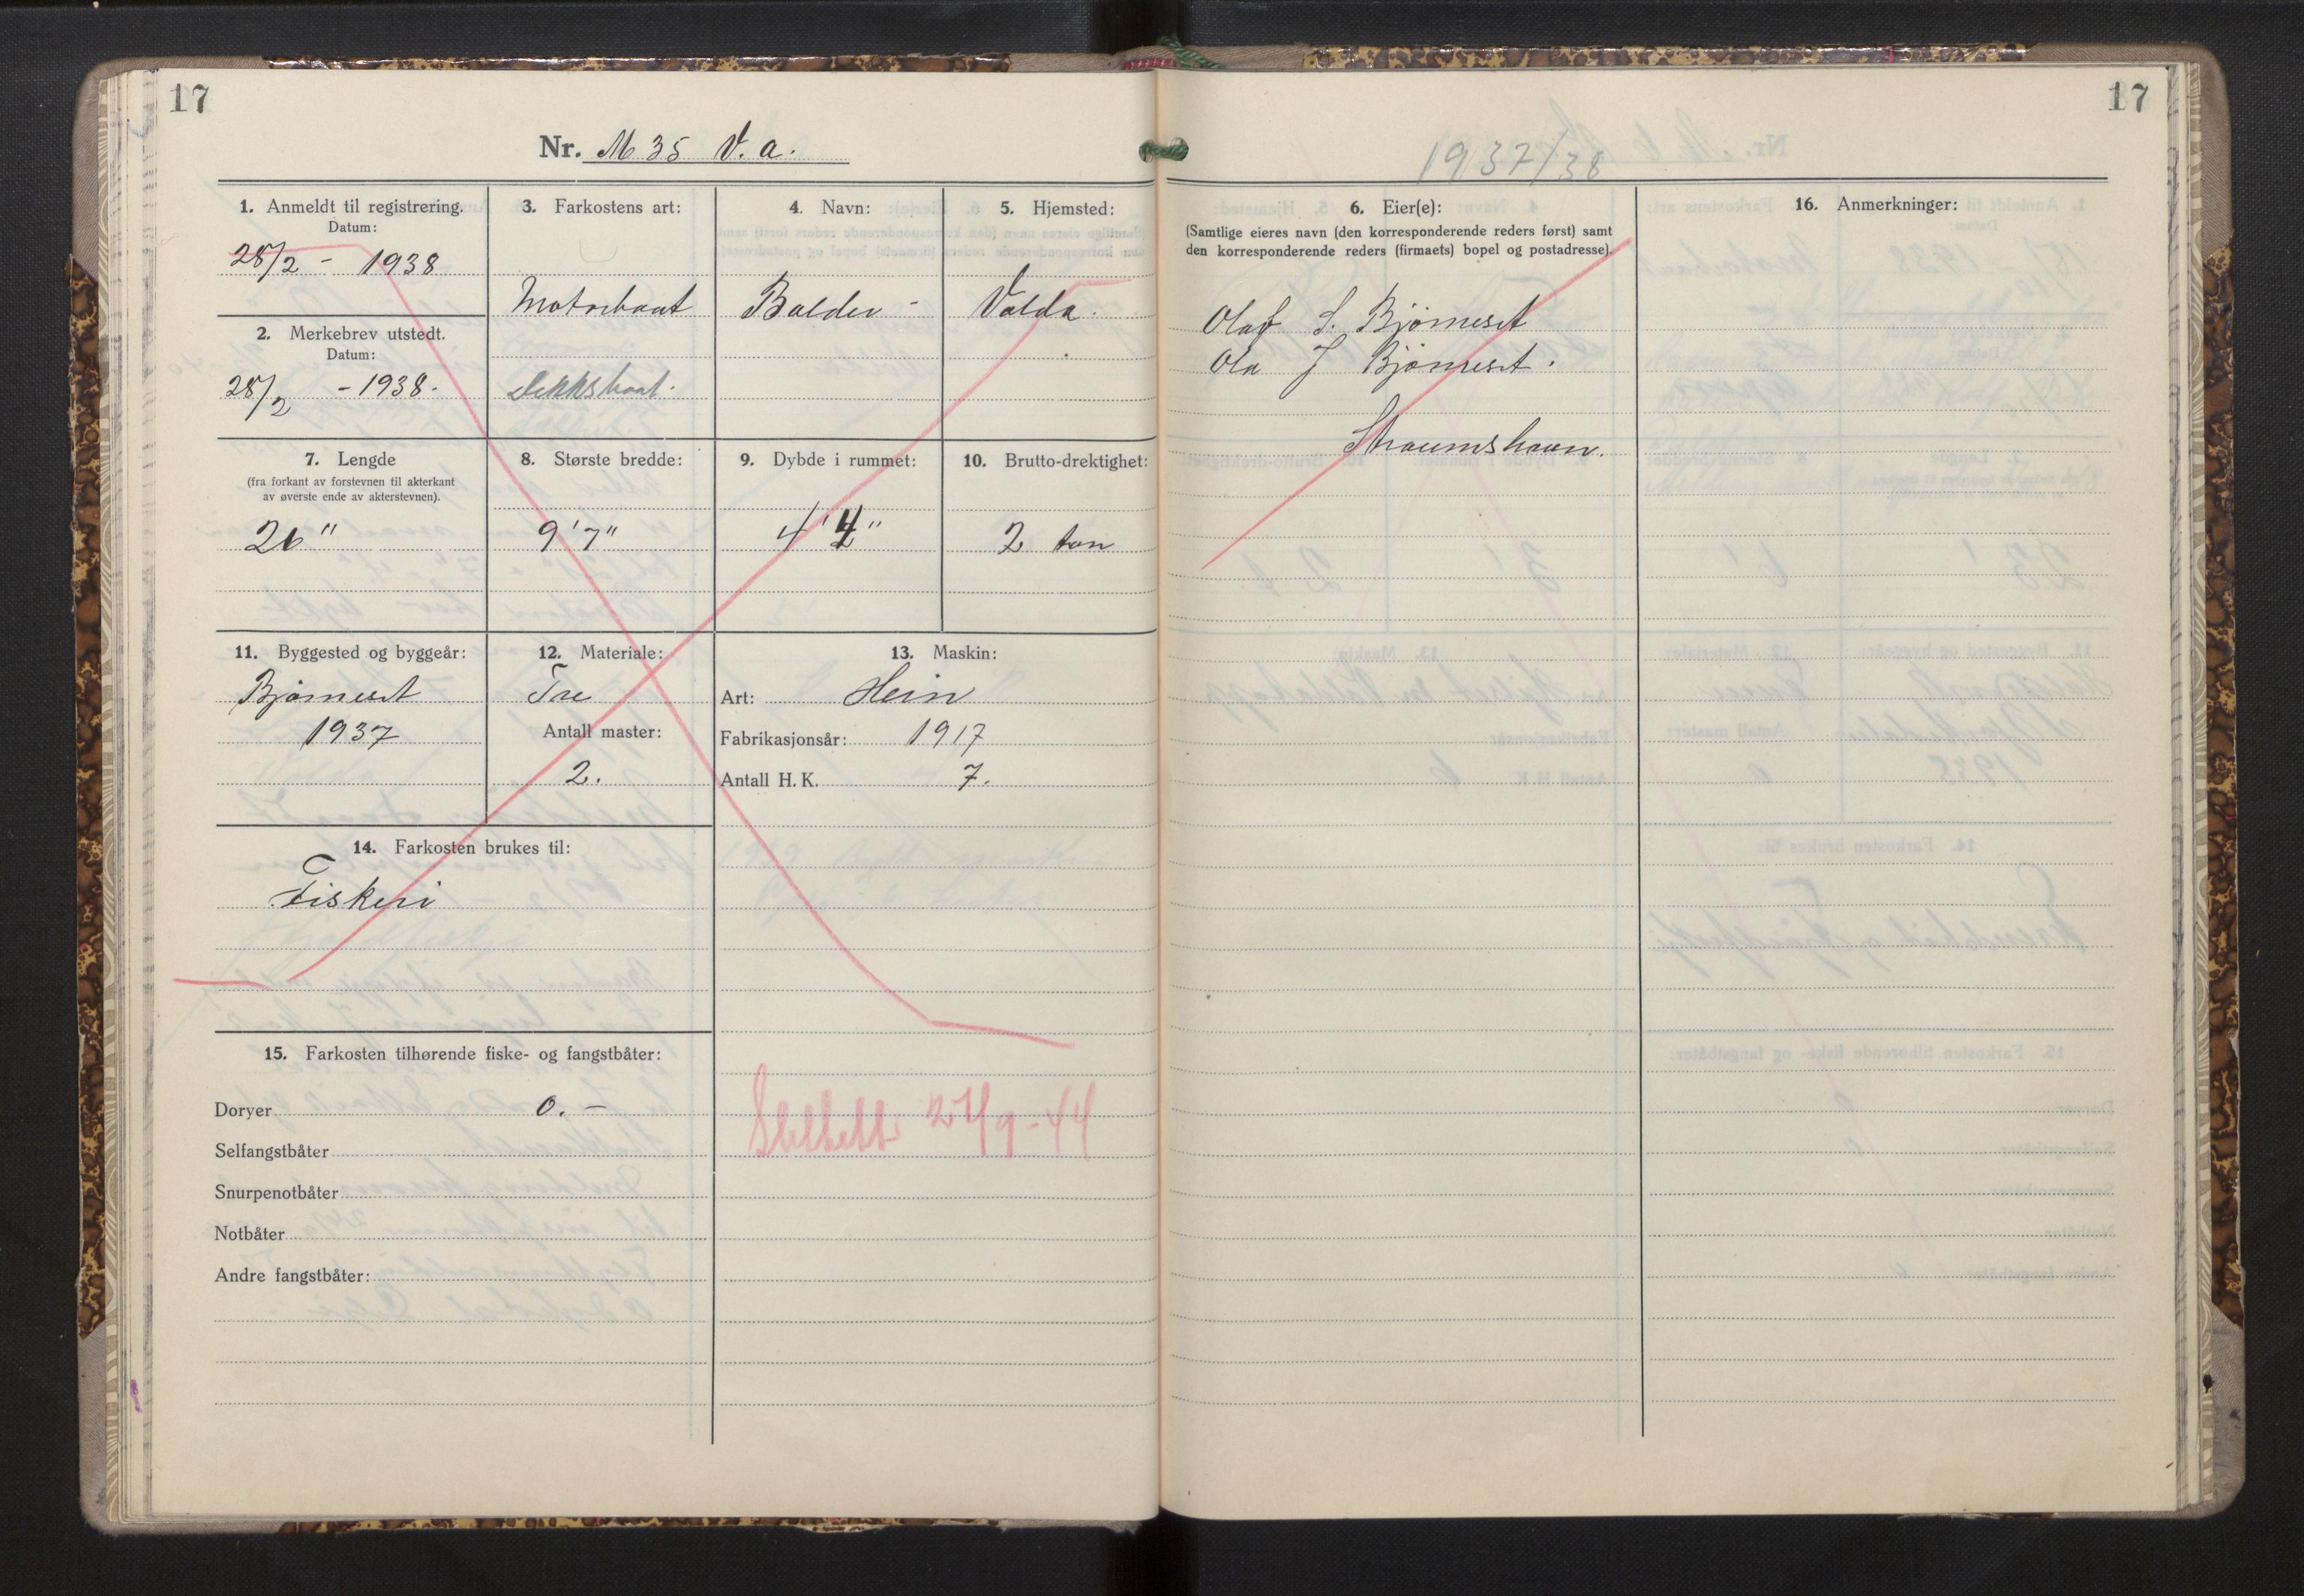 17
Nr. M 35 V. a.
1. Anmeldt til registrering.
Datum:
28/2 - 1938
2. Merkebrev utstedt.
Datum:
28/2 - 1938.
3. Farkostens art:
Motorbaat
Dekksbaat.
4. Navn:
Balder -
5. Hjemsted:
Volda.
7. Lengde
(fra forkant av forstevnen til akterkant
av øverste ende av akterstevnen).
26"
8. Største bredde:
9'7"
9. Dybde i rummet:
4'4"
10. Brutto-drektighet:
2 ton
11. Byggested og byggeår:
Bjørneset
1937
12. Materiale:
Tre
Antall master:
2.
13. Maskin:
Art: Hein
Fabrikasjonsår: 1917
Antall H. K. 7.
14. Farkosten brukes til:
Fiskeri
15. Farkosten tilhørende fiske- og fangstbåter:
Doryer 0. -
Selfangstbåter
Snurpenotbåter
Notbåter
Andre fangstbåter:
Slettett 24/9-44
17
1937/38
6. Eier(e):
(Samtlige eieres navn (den korresponderende reders først) samt
den korresponderende reders (firmaets) bopel og postadresse).
Olaf S. Bjørneset
Ola J Bjørneset.
Straumshavn.
16. Anmerkninger: